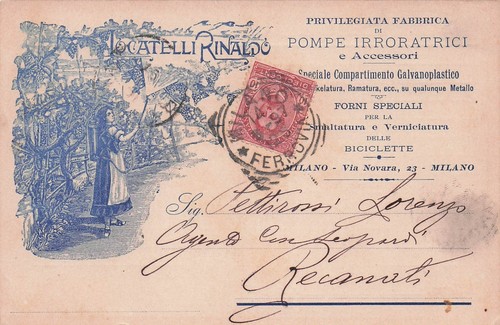 LOCATELLI RINALDO
PRIVILEGIATA FABBRICA
DI
POMPE IRRORATRICI
e Accessori
Speciale Compartimento Galvanoplastico
kelatura, Ramatura, ecc., su qualunque Metallo
FORNI SPECIALI
PER LA
maltatura e Verniciatura
DELLE
BICICLETTE
MILANO - Via Novara, 23 - MILANO
FERROVIA
Sig. Settirossi Lorenzo
Agente Con Leopardi
Recanati